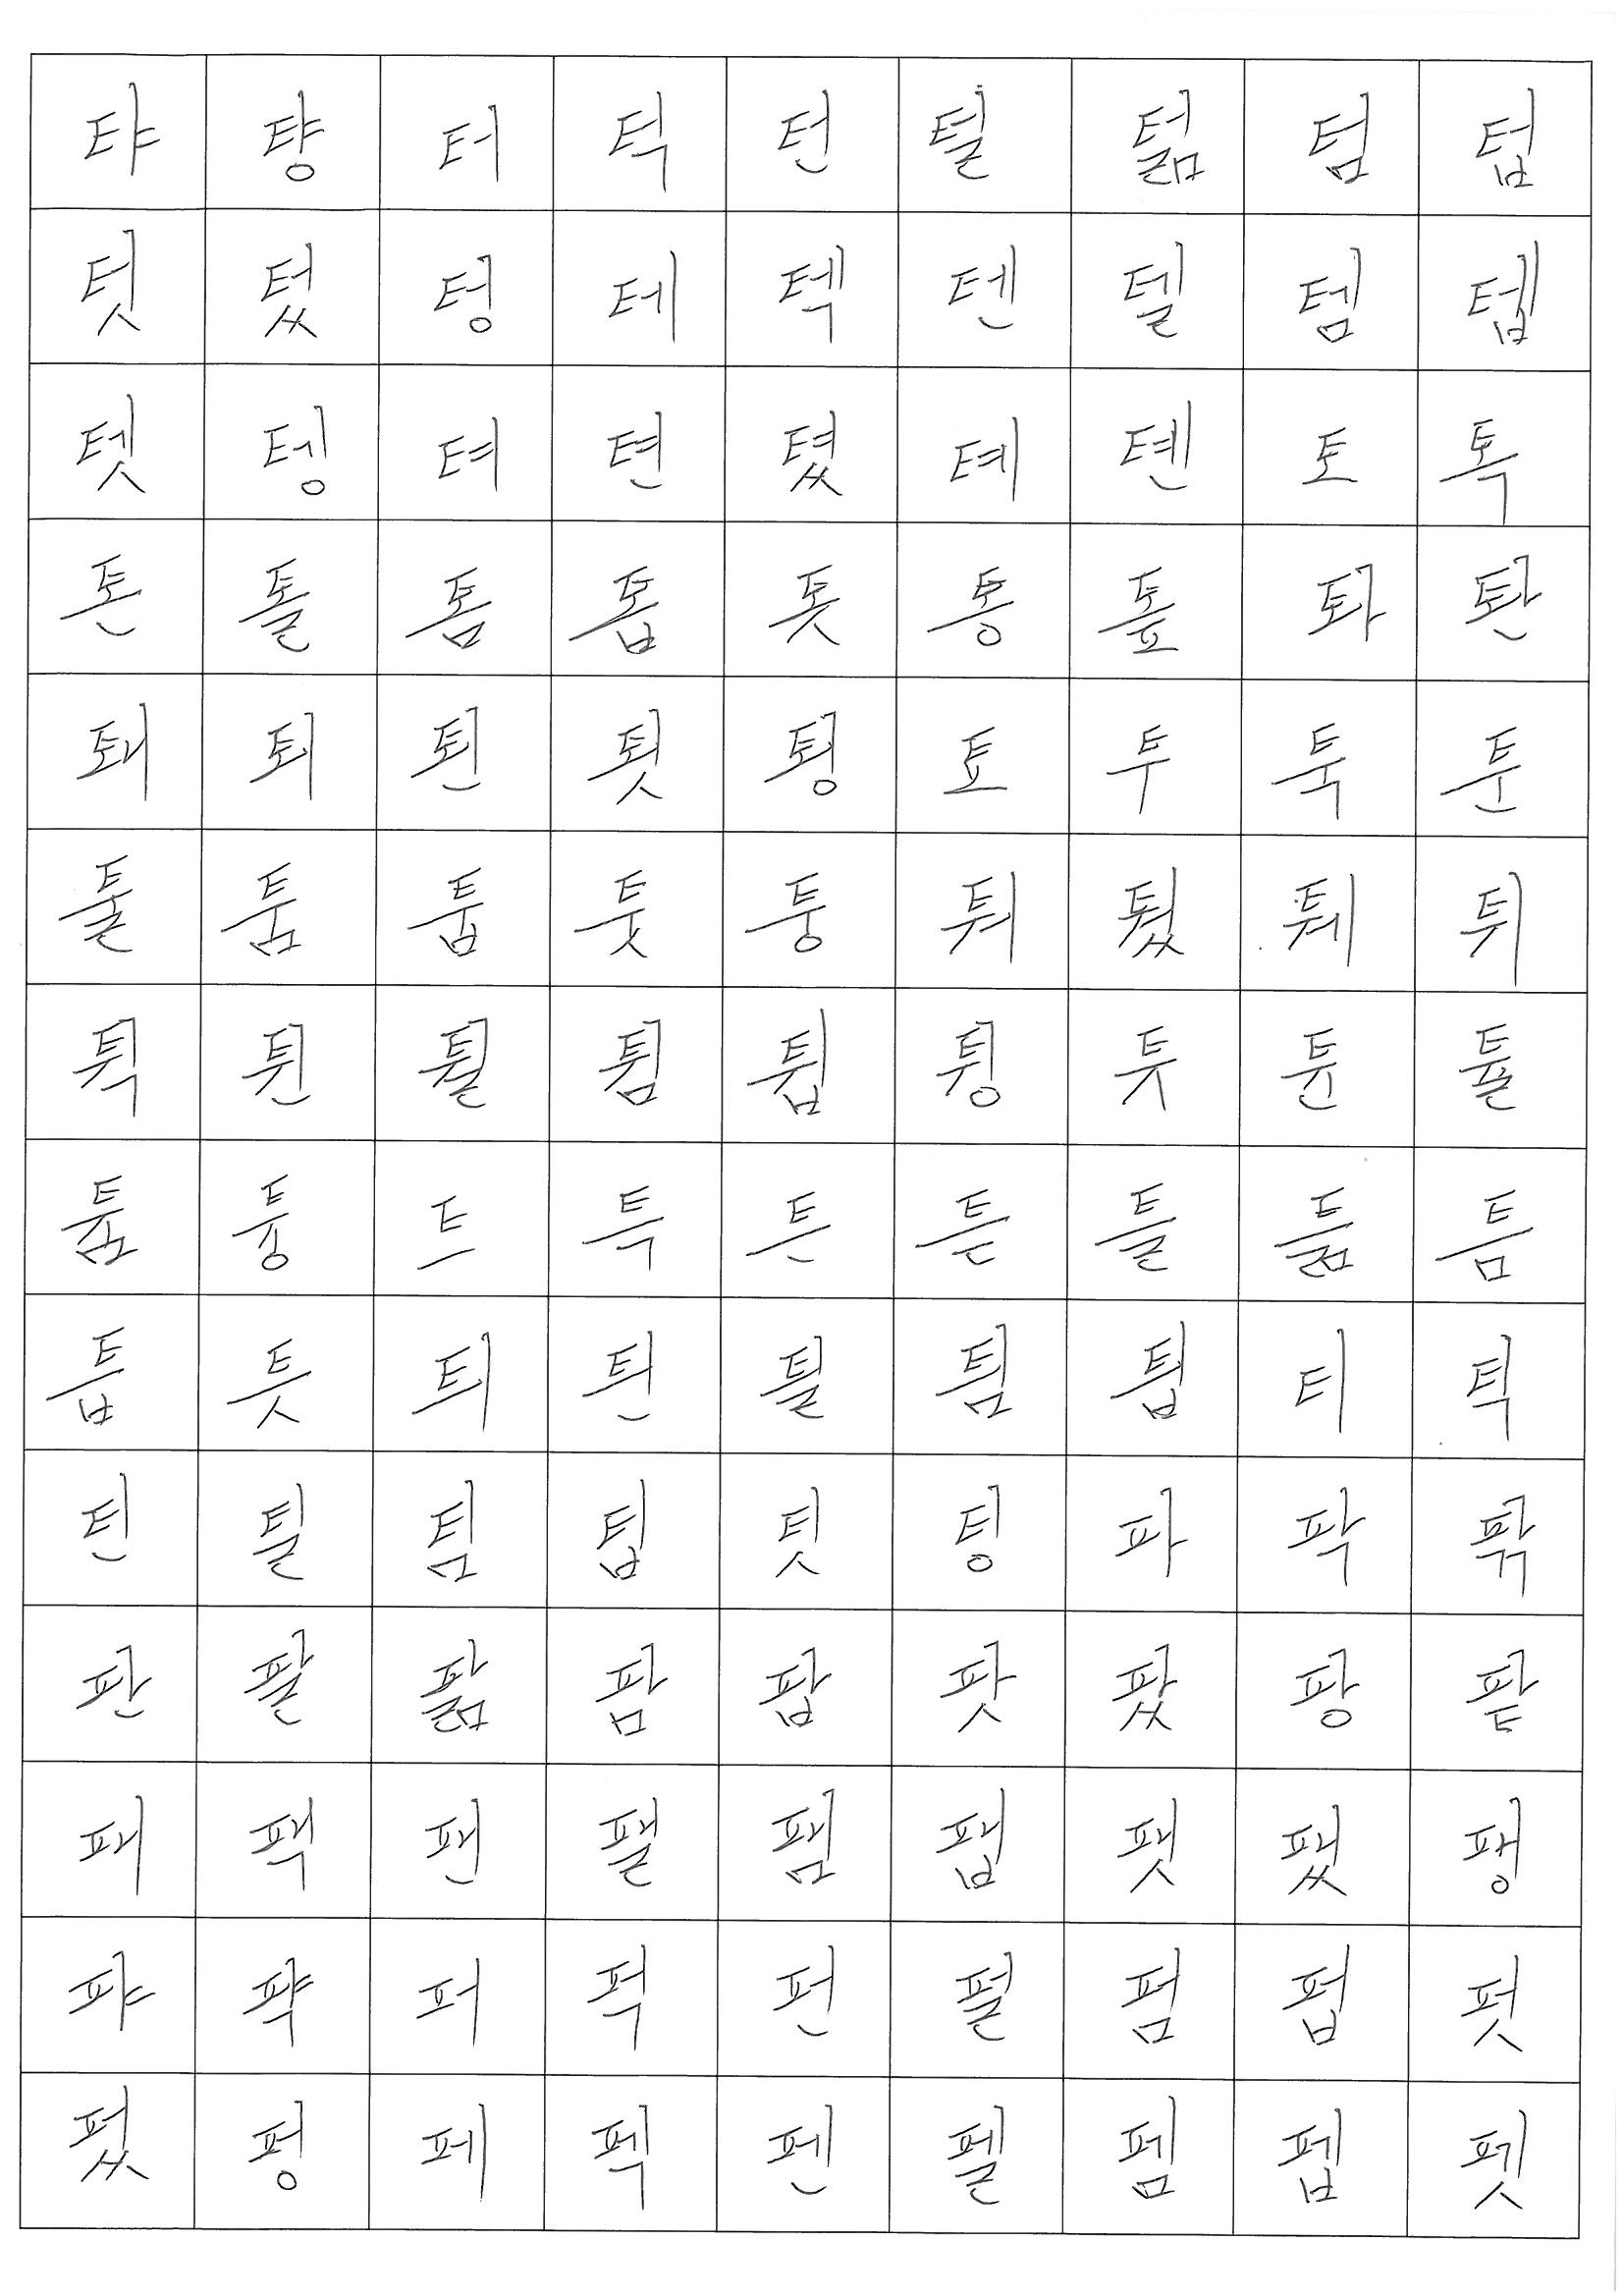 탸 턍 터 턱 턴 털 턺 텀 텁
텃 텄 텅 테 텍 텐 텔 템 텝
텟 텡 텨 텬 텼 톄 톈 토 톡
톤 톨 톰 톱 톳 통 톺 톼 퇀
퇘 퇴 퇸 툇 툉 툐 투 툭 툰
툴 툼 툽 툿 퉁 퉈 퉜 퉤 튀
튁 튄 튈 튐 튑 튕 튜 튠 튤
튬 튱 트 특 튼 튿 틀 틂 틈
틉 틋 틔 틘 틜 틤 틥 티 틱
틴 틸 팀 팁 팃 팅 파 팍 팎
판 팔 팖 팜 팝 팟 팠 팡 팥
패 팩 팬 팰 팸 팹 팻 팼 팽
퍄 퍅 퍼 퍽 펀 펄 펌 펍 펏
펐 펑 페 펙 펜 펠 펨 펩 펫